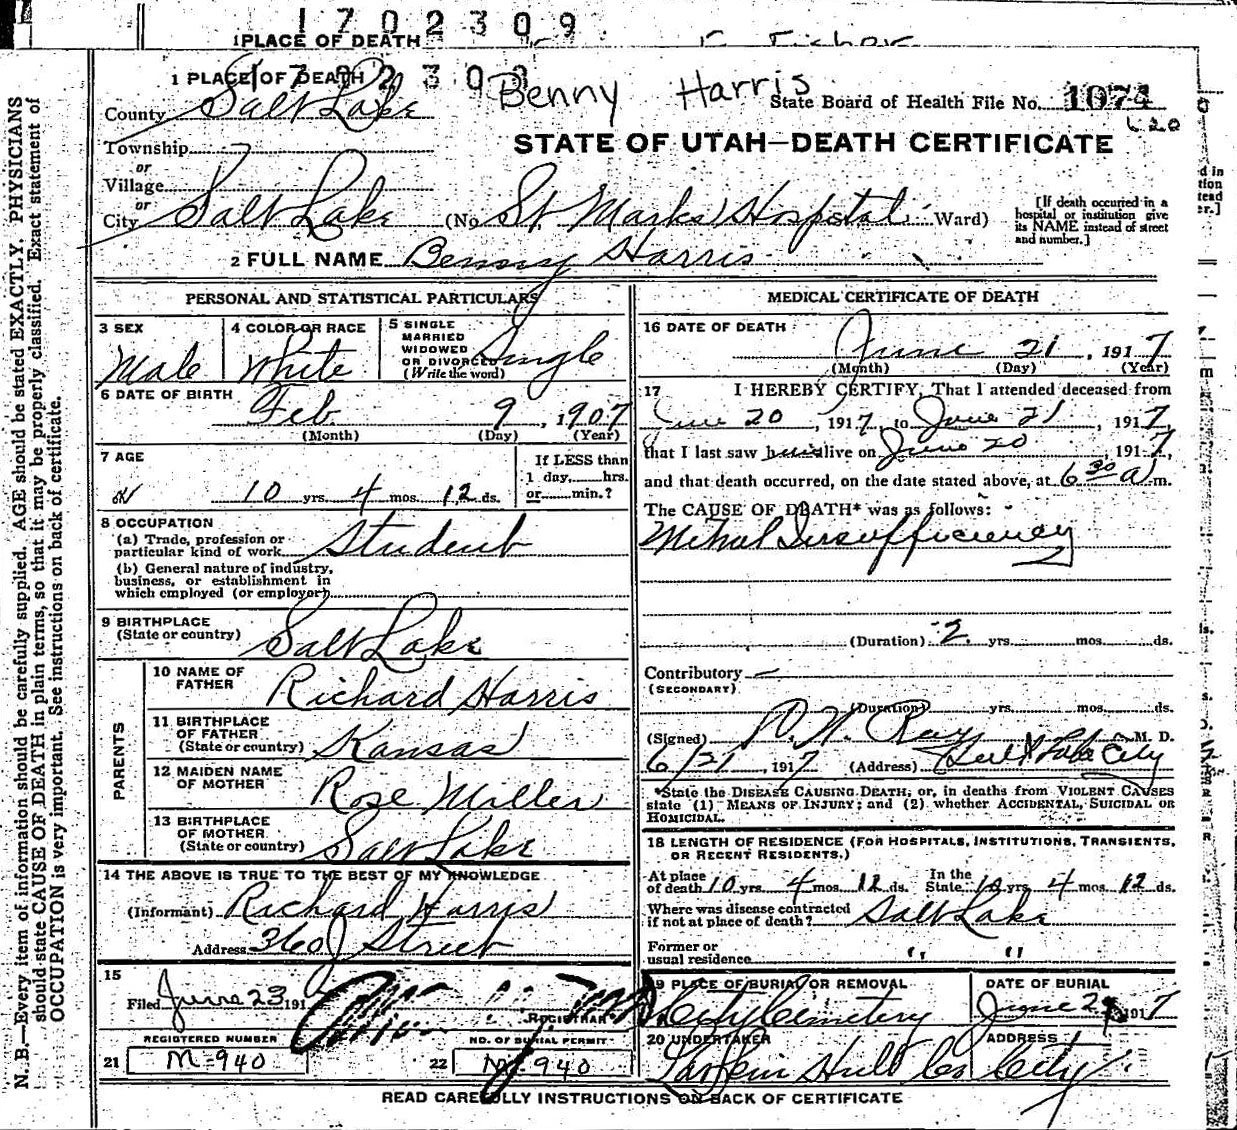 1702309
1 PLACE OF DEATH
1 PLACE OF DEATH
Benny Harris
State Board of Health File No. 1074
County Salt Lake
STATE OF UTAH—DEATH CERTIFICATE
Township
or
Village
or
City Salt Lake (No. St. Marks Hospital St. Ward)
[If death occurred in a
hospital or institution give
its NAME instead of street
and number.]
2 FULL NAME Benny Harris
PERSONAL AND STATISTICAL PARTICULARS
3 SEX Male
4 COLOR OR RACE White
5 SINGLE
MARRIED
WIDOWED
OR DIVORCED
(Write the word) Single
6 DATE OF BIRTH
Feb. 9, 1907
(Month) (Day) (Year)
7 AGE
10 yrs. 4 mos. 12 ds.
If LESS than
1 day, hrs.
or min.?
8 OCCUPATION
(a) Trade, profession or
particular kind of work Student
(b) General nature of industry,
business, or establishment in
which employed (or employer)
9 BIRTHPLACE
(State or country) Salt Lake
PARENTS
10 NAME OF
FATHER Richard Harris
11 BIRTHPLACE
OF FATHER
(State or country) Kansas
12 MAIDEN NAME
OF MOTHER Rose Miller
13 BIRTHPLACE
OF MOTHER
(State or country) Salt Lake
14 THE ABOVE IS TRUE TO THE BEST OF MY KNOWLEDGE
(Informant) Richard Harris
Address 360 J Street
15
Filed June 23 191
REGISTRAR
REGISTERED NUMBER
21 M-940
NO. OF BURIAL PERMIT
22 M-940
MEDICAL CERTIFICATE OF DEATH
16 DATE OF DEATH
June 21, 1917
(Month) (Day) (Year)
17 I HEREBY CERTIFY, That I attended deceased from
June 20, 1917, to June 21, 1917
that I last saw him alive on June 20, 1917,
and that death occurred, on the date stated above, at 6 30 a m.
The CAUSE OF DEATH* was as follows:
Mitral Insufficiency
(Duration) 2 yrs. mos. ds.
Contributory
(SECONDARY)
(Duration) yrs. mos. ds.
(Signed) Ray M. D.
6/21, 1917 (Address) Salt Lake City
*State the DISEASE CAUSING DEATH; or, in deaths from VIOLENT CAUSES
state (1) MEANS OF INJURY; and (2) whether ACCIDENTAL, SUICIDAL OR
HOMICIDAL.
18 LENGTH OF RESIDENCE (FOR HOSPITALS, INSTITUTIONS, TRANSIENTS,
OR RECENT RESIDENTS.)
At place
of death 10 yrs. 4 mos. 12 ds. In the
State 10 yrs. 4 mos. 12 ds.
Where was disease contracted
if not at place of death? Salt Lake
Former or
usual residence " "
19 PLACE OF BURIAL OR REMOVAL
City Cemetery
DATE OF BURIAL
June 1917
20 UNDERTAKER
Larkin Hull Co
ADDRESS
City
READ CAREFULLY INSTRUCTIONS ON BACK OF CERTIFICATE
N. B.—Every item of information should be carefully supplied. AGE should be stated EXACTLY. PHYSICIANS
should state CAUSE OF DEATH in plain terms, so that it may be properly classified. Exact statement of
OCCUPATION is very important. See instructions on back of certificate.